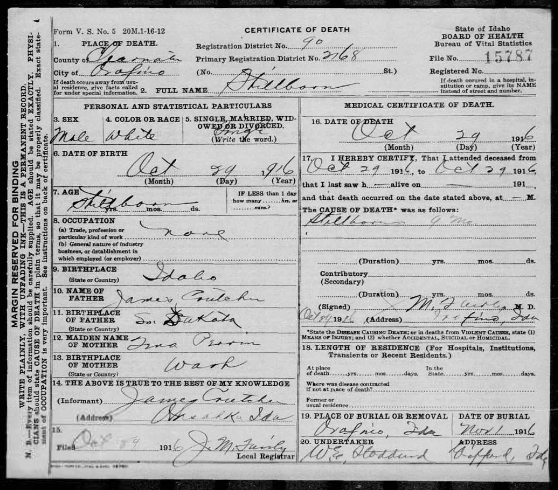 Form V. S. No. 5 20M.1-16-12
CERTIFICATE OF DEATH
State of Idaho
BOARD OF HEALTH
Bureau of Vital Statistics
1. PLACE OF DEATH.
County of
City of Orofino
Registration District No. 90
Primary Registration District No. 2768
(No. St.)
File No. 15787
Registered No.
If death occurs away from usual residence, give facts called for under special information.
2. FULL NAME Stillborn
If death occurred in a hospital, institution or camp, give its NAME instead of street and number.
PERSONAL AND STATISTICAL PARTICULARS
3. SEX
Male
4. COLOR OR RACE
White
5. SINGLE, MARRIED, WIDOWED OR DIVORCED.
Single
(Write the word.)
6. DATE OF BIRTH
Oct 29 1916
(Month) (Day) (Year)
7. AGE
Stillborn
yrs. mos. ds.
IF LESS than 1 day
how many hrs. or min.?
8. OCCUPATION
(a) Trade, profession or particular kind of work none
(b) General nature of industry, business, or establishment in which employed (or employer)
9. BIRTHPLACE
(State or Country) Idaho
10. NAME OF FATHER James
11. BIRTHPLACE OF FATHER
(State or Country) So. Dakota
12. MAIDEN NAME OF MOTHER
13. BIRTHPLACE OF MOTHER
(State or Country) Wash
14. THE ABOVE IS TRUE TO THE BEST OF MY KNOWLEDGE
(Informant) James
(Address) Ida
15.
Filed Oct 29 1916 J. M. Fairly
Local Registrar
MEDICAL CERTIFICATE OF DEATH.
16. DATE OF DEATH
Oct 29 1916
(Month) (Day) (Year)
17. I HEREBY CERTIFY, That I attended deceased from
Oct 29 1916 to Oct 29 1916
that I last saw h alive on 191
and that death occurred on the date stated above, at M.
The CAUSE OF DEATH* was as follows:
Stillborn
(Duration) yrs. mos. ds.
Contributory
(Secondary)
(Duration) yrs. mos. ds.
(Signed) J. M. Fairly M. D.
1916 (Address) Orofino, Ida
*State the DISEASE CAUSING DEATH; or in deaths from VIOLENT CAUSES, state (1) MEANS OF INJURY; and (2) whether ACCIDENTAL, SUICIDAL or HOMICIDAL.
18. LENGTH OF RESIDENCE (For Hospitals, Institutions, Transients or Recent Residents.)
At place of death yrs. mos. days. In the State yrs. mos. ds.
Where was disease contracted if not at place of death?
Former or usual residence
19. PLACE OF BURIAL OR REMOVAL
Orofino, Ida
DATE OF BURIAL
Nov 1 1916
20. UNDERTAKER
W.E.
ADDRESS
Ida
MARGIN RESERVED FOR BINDING
WRITE PLAINLY, WITH UNFADING INK—THIS IS A PERMANENT RECORD.
N. B.—Every item of information should be carefully supplied. AGE should be stated EXACTLY. PHYSICIANS should state CAUSE OF DEATH in plain terms, so that it may be properly classified. Exact statement of OCCUPATION is very important. See instructions on back of certificate.